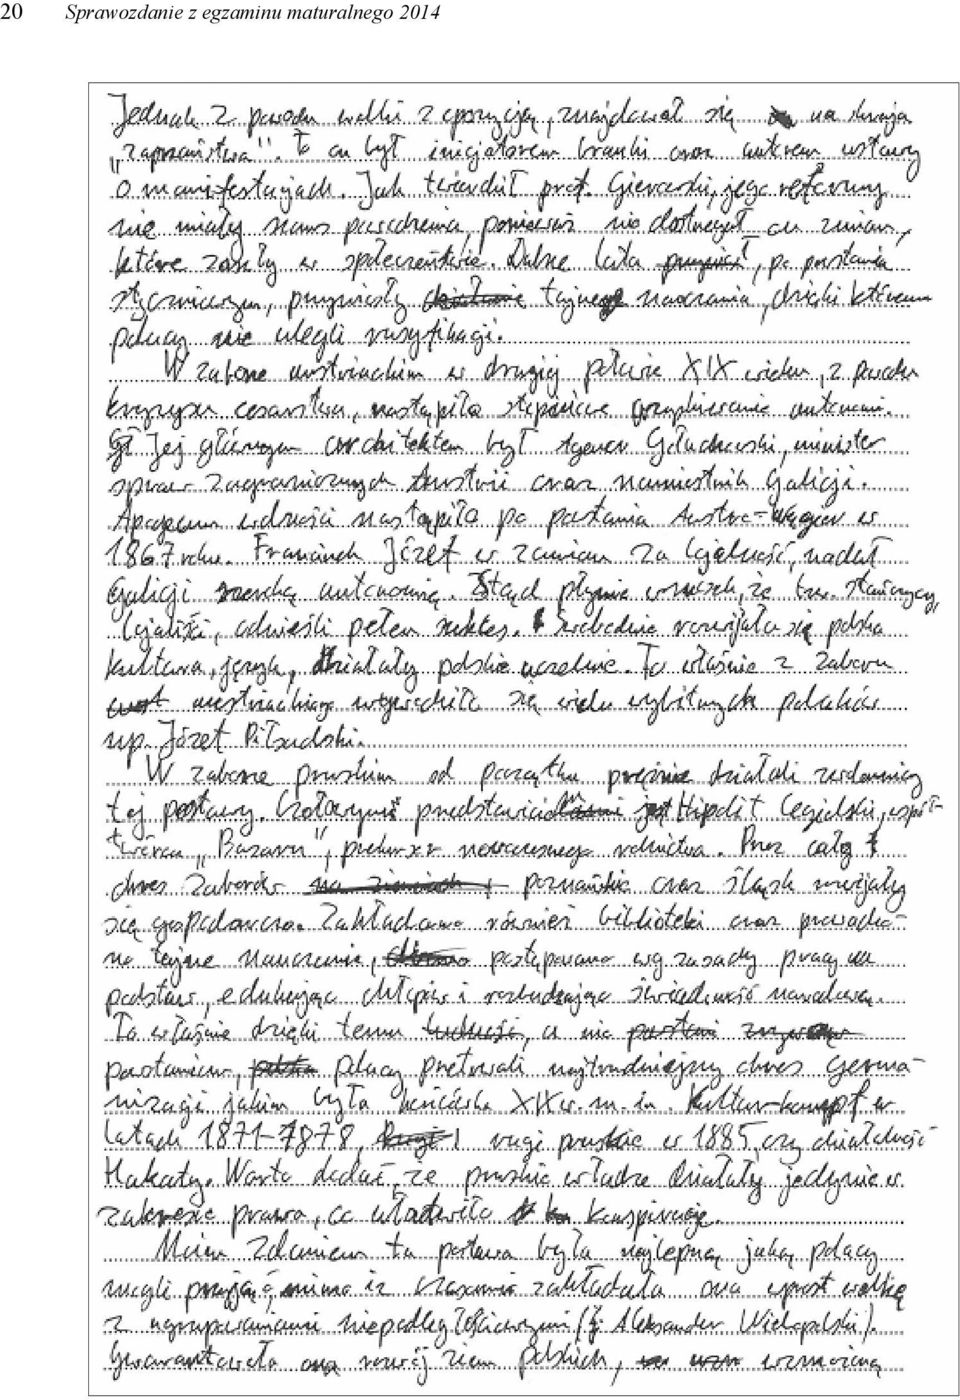 20 Sprawozdanie z egzaminu maturalnego 2014
Jednak z powodu walki z opozycją, znajdował się na skraju
„zaprzaństwa". To on był inicjatorem branki oraz autorem ustawy
o manifestacjach. Jak twierdził prof. Gierowski, jego reformy
nie miały szans powodzenia, ponieważ nie dostrzegał on zmian,
które zaszły w społeczeństwie. Dalsze lata przyniósł, po powstaniu
styczniowym, przyniosły działanie tajnego nauczania, dzięki któremu
polacy nie ulegli rusyfikacji.
W zaborze austriackim w drugiej połowie XIX wieku, z powodu
kryzysu cesarstwa, nastąpiło stopniowe przybieranie autonomi.
Jej głównym architektem był Agenor Gołuchowski, minister
spraw zagranicznych Austrii oraz namiestnik Galicji.
Apogeum wolności nastąpiło po powstaniu Austro-Węgier w
1867 roku. Franciszek Józef w zamian za lojalność, nadał
Galicji szeroką autonomię. Stąd płynie wniosek, że tzw. stańczycy,
lojaliści, odnieśli pełen sukces. Swobodnie rozwijała się polska
kultura, język, działały polskie uczelnie. To właśnie z zaboru
aust austriackiego wywodziło się wielu wybitnych polaków
np. Józef Piłsudski.
W zaborze pruskim od początku prężnie działali zwolennicy
tej postawy. Czołowym przedstawicielem jest Hipolit Cegielski, współ-
twórca „Bazaru", prekursor nowoczesnego rolnictwa. Przez cały
okres zaborów na ziemiach poznańskie oraz śląsk rozwijały
się gospodarczo. Zakładano również biblioteki oraz prowadzo-
no tajne nauczanie, postępowano wg zasady pracy u
podstaw, edukując chłopów i rozbudzając świadomość narodową.
To właśnie dzięki temu ludności, a nie powstani zrywom
powstaniom, polacy przetrwali najtrudniejszy okres germa-
nizacji jakim była końcówka XIX w. m.in. Kultur-kampf w
latach 1871-1878, Rugi rugi pruskie w 1885, czy działalność
Hakaty. Warto dodać, że pruskie władze działały jedynie w
zakresie prawa, co ułatwiło konspirację.
Moim zdaniem ta postawa była najlepszą jaką polacy
mogli przyjąć, mimo iż czasami zakładała ona wprost walkę
z ugrupowaniami niepodległościowymi (jż Aleksander Wielopolski).
Gwarantowała ona rozwój ziem polskich, wzmożoną